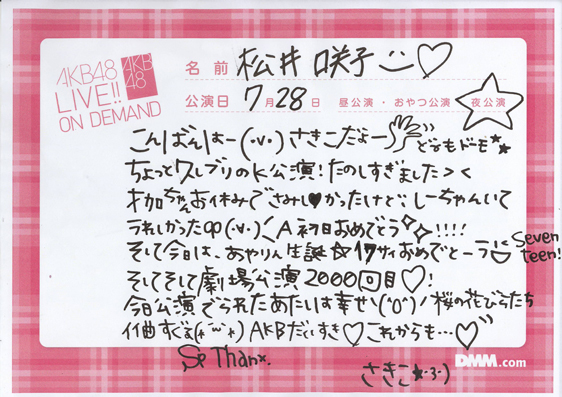 AKB48
LIVE!!
ON DEMAND
AKB
48
名前 松井咲子
公演日 7月28日 昼公演・おやつ公演 夜公演
こんばんはー(・v・)さきこだよー どーもドーモ
ちょっとクレブリのK公演!たのしすぎました><
才加ちゃんお休みでさみし♥かったけど、しーちゃんいて
うれしかったqp(・v・) A初日おめでとう!!!!
そして今日は、あやりん生誕☆17サイおめでとーう Seven
teen!
そしてそして劇場公演2000回目♡!
今日公演でられたあたいは幸せ\(^0^)/桜の花びらたち
イイ曲すぐる(*´ω`*)AKBだいすき♡これからも…♡
So Thanx.
さきこ★・3・)
DMM.com